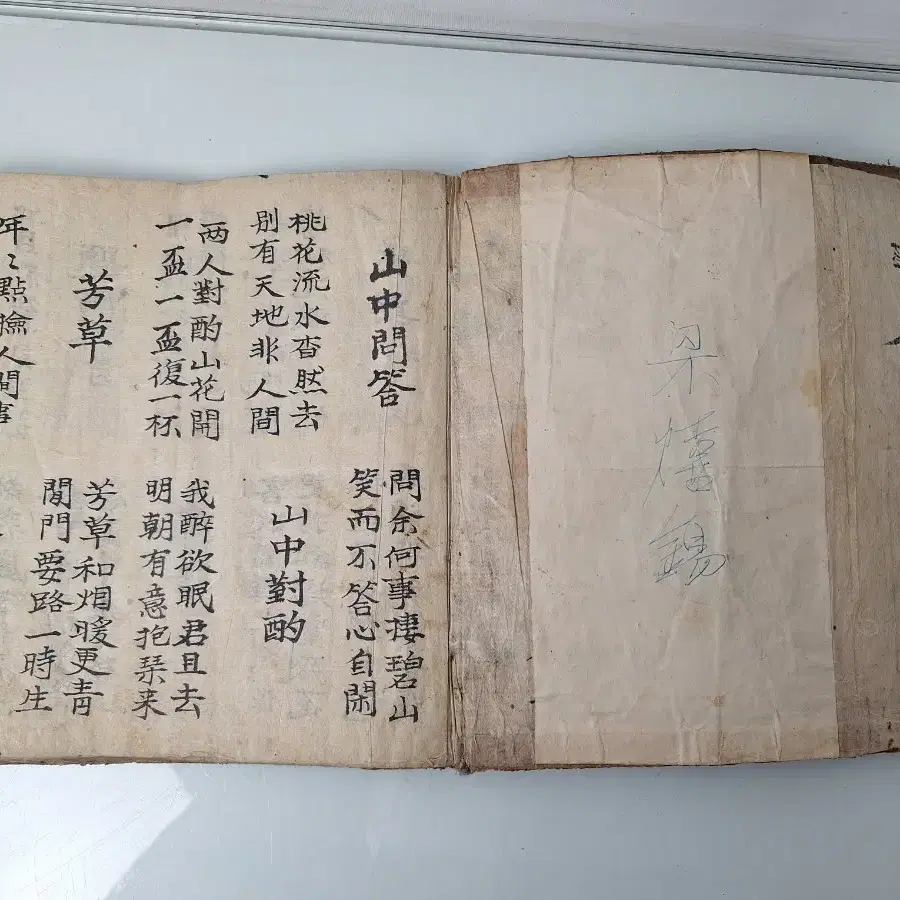 梁
錫
山中問答
問余何事捿碧山
笑而不答心自閑
桃花流水杳然去
別有天地非人間
山中對酌
两人對酌山花開
一盃一盃復一杯
我醉欲眠君且去
明朝有意抱琹来
芳草
芳草和烟暖更青
閒門要路一時生
年〻點撿人間事